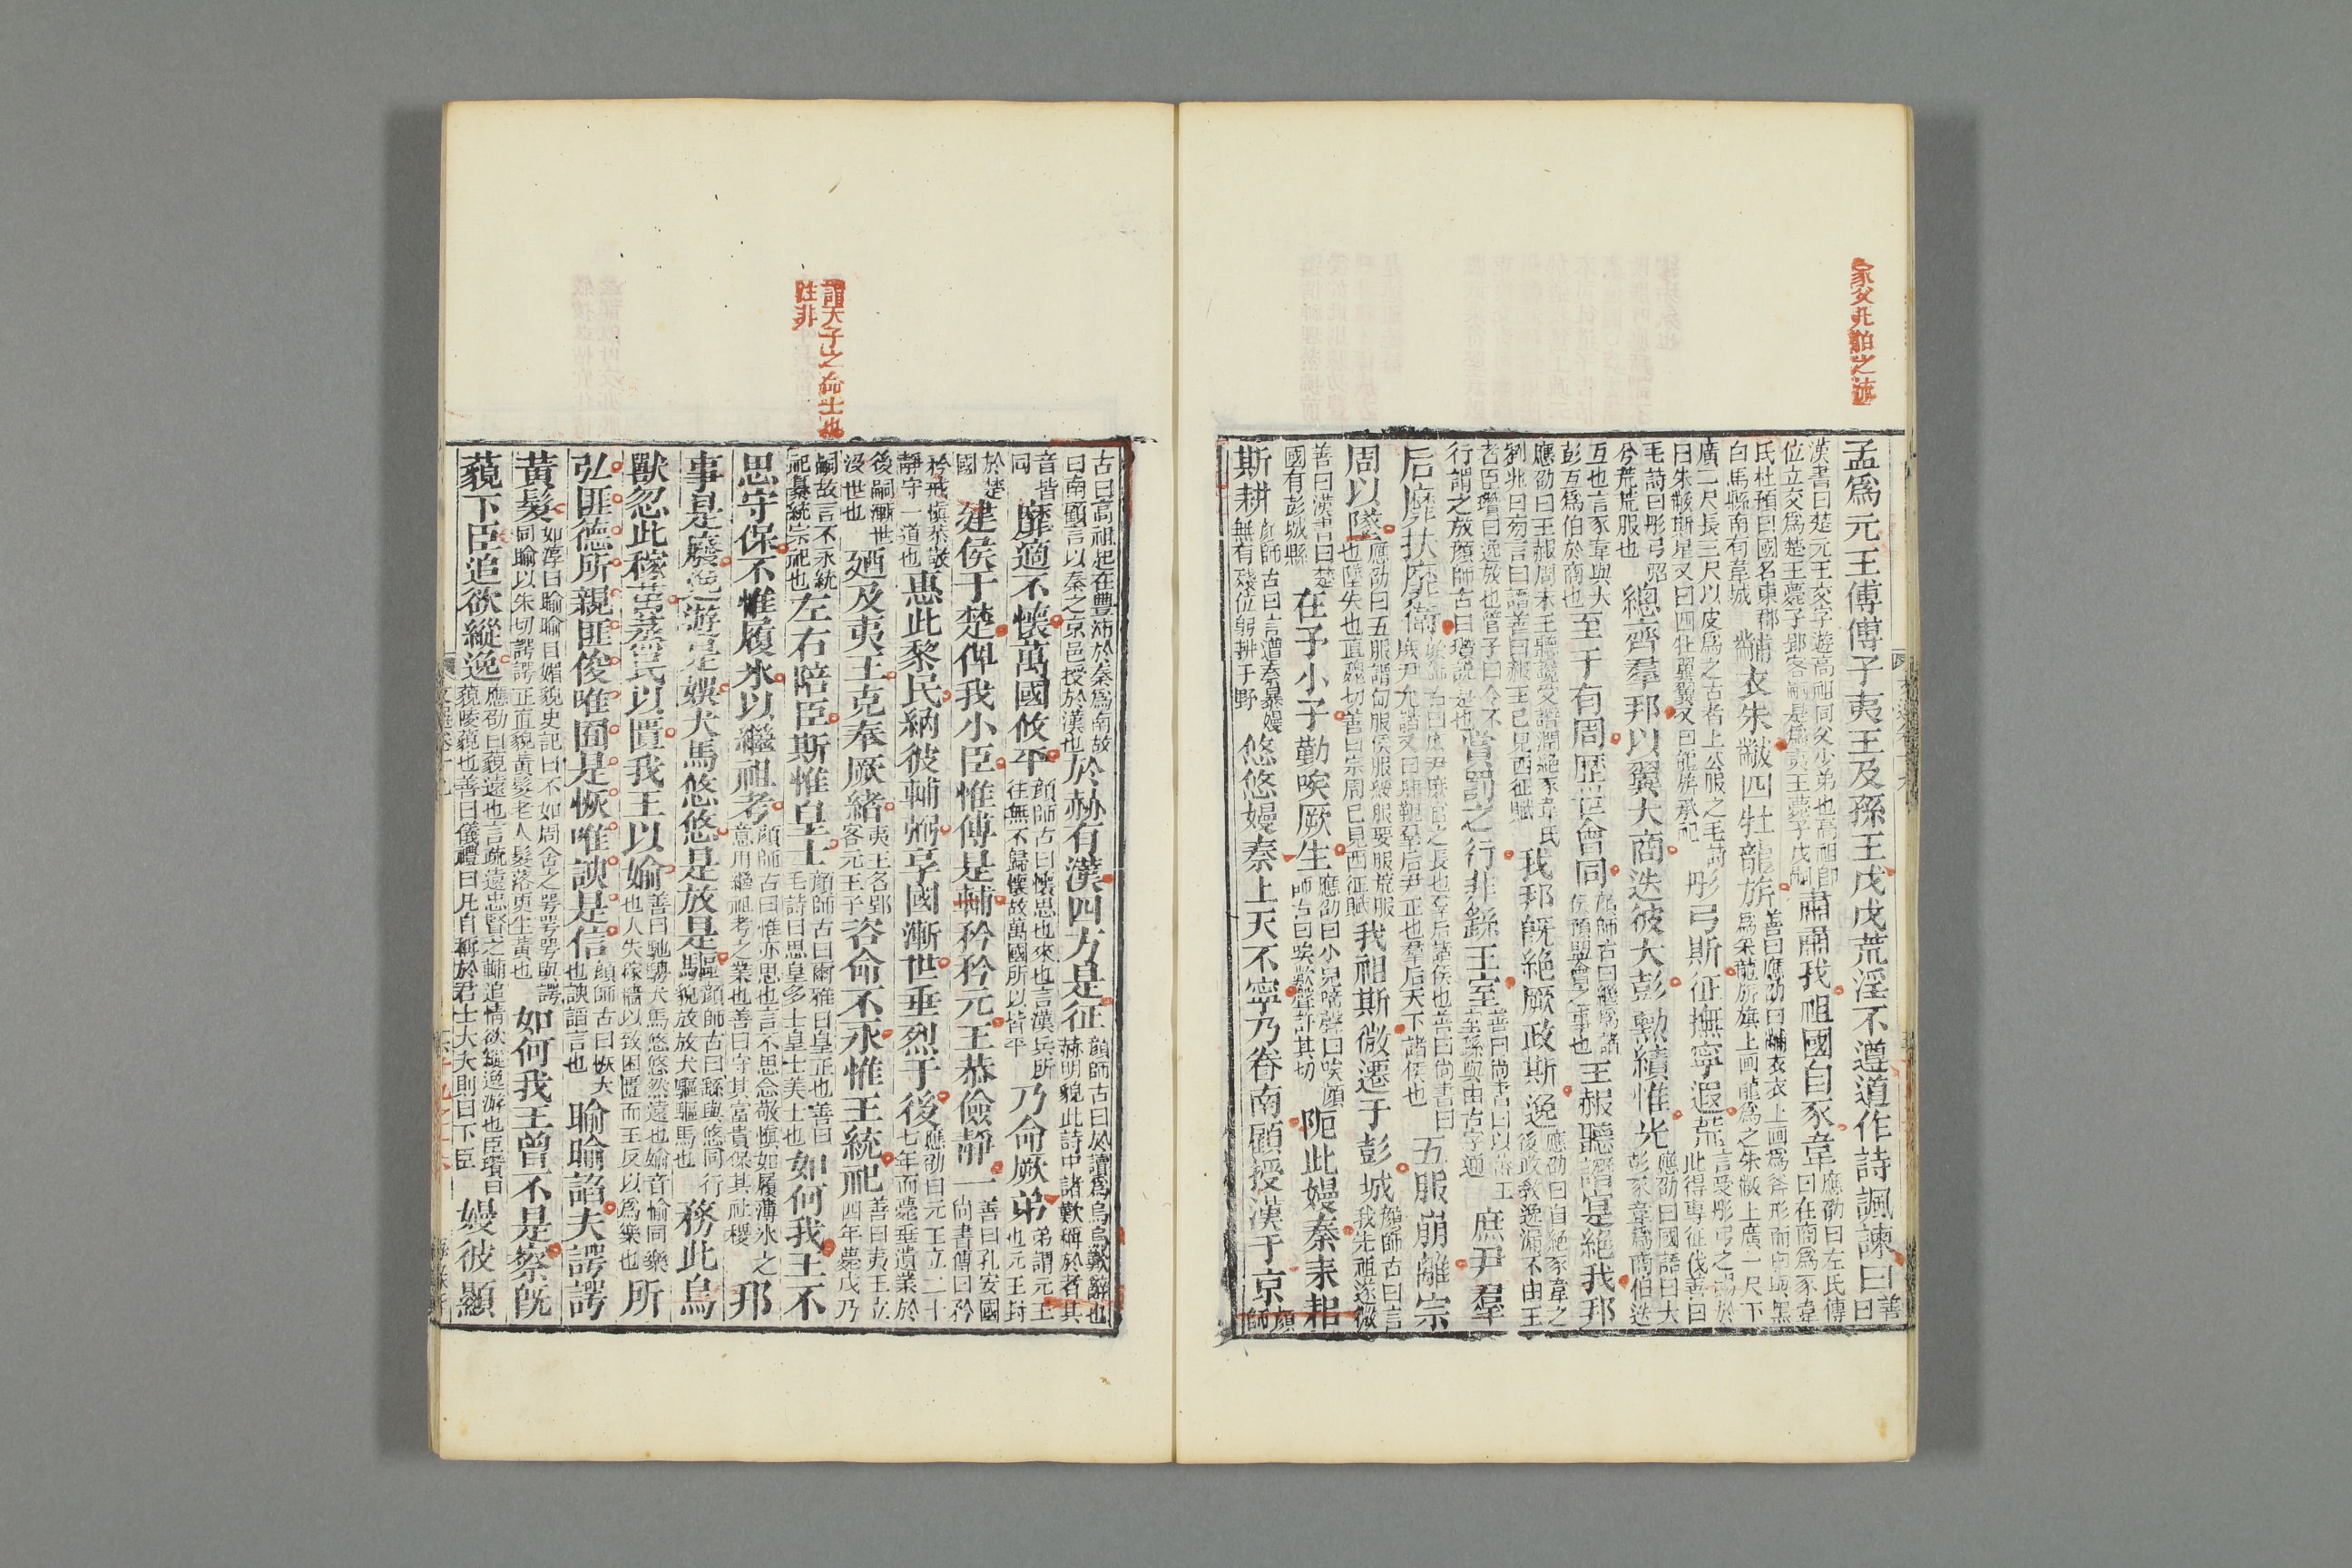 家父凡伯之遺
孟爲元王傅傅子夷王及孫王戊戊荒淫不遵道作詩諷諫曰善曰
漢書曰楚元王交字遊高祖同父少弟也高祖即位立交爲楚王薨子郢客嗣是爲夷王薨子戊嗣肅肅我祖國自豕韋應劭曰左氏傳曰在商爲豕韋
氏杜預曰國名東郡白馬縣南有韋城黼衣朱黻四牡龍旂善曰應劭曰黼衣衣上画爲斧形而白與黑爲采龍旂旗上画龍爲之朱黻上廣一尺下
廣二尺長三尺以皮爲之古者上公服之毛詩曰朱黻斯皇又曰四牡翼翼又曰龍旂承祀彤弓斯征撫寧遐荒言受彤弓之賜於此得專征伐善曰
毛詩曰彤弓弨兮荒荒服也總齊羣邦以翼大商迭彼大彭勲績惟光應劭曰國語曰大彭豕韋爲商伯迭
互也言豕韋與大彭互爲伯於商也至于有周歷世會同顏師古曰繼爲諸侯預盟會之事也王赧聽譖寔絶我邦
應劭曰王赧周末王聽讒受譖潤絶豕韋氏劉兆曰旁言曰譖善曰赧王已見西征賦我邦旣絶厥政斯逸應劭曰自絶豕韋之後政教逸漏不由王
者臣瓚曰逸放也管子曰令不行謂之放顏師古曰瓚說是也賞罰之行非繇王室善曰尚書曰以蕃王室繇與由古字通庶尹羣
后靡扶靡衛顏師古曰庶尹庶官之長也羣后諸侯也善曰尚書曰庶尹允諧又曰肆覲羣后尹正也羣后天下諸侯也五服崩離宗
周以墜應劭曰五服謂甸服侯服綏服要服荒服也墜失也直魏切善曰宗周已見西征賦我祖斯微遷于彭城顏師古曰言我先祖遂微
善曰漢書曰楚國有彭城縣在予小子勤唉厥生應劭曰小兒啼聲曰唉顏師古曰唉歎聲許其切阨此嫚秦耒耜
斯耕顏師古曰言遭秦暴嫚無有殘位躬耕于野悠悠嫚秦上天不寧乃眷南顧授漢于京顏師
古曰高祖起在豐沛於秦爲南故曰南顧言以秦之京邑授於漢也於赫有漢四方是征顏師古曰於讀爲烏烏歎辭也赫明貌此詩中諸歎稱於者其
音皆同靡適不懷萬國攸平顏師古曰懷思也來也言漢兵所往無不歸懷故萬國所以皆平乃命厥弟弟謂元王也元王封
於楚國建侯于楚俾我小臣惟傅是輔矜矜元王恭儉靜一善曰孔安國尚書傳曰矜
矜戒愼恭敬靜守一道也惠此黎民納彼輔弼享國漸世垂烈于後應劭曰元王立二十七年而薨垂遺業於
後嗣漸世没世也廼及夷王克奉厥緒夷王名郢客元王子咨命不永惟王統祀善曰夷王立四年薨戊乃
嗣故言不永統祀纂統宗祀也左右陪臣斯惟皇士顏師古曰爾雅曰皇正也善曰毛詩曰思皇多士皇士美士也如何我王不
謂天子之命士也
註非
思守保不惟履氷以繼祖考顏師古曰惟亦思也言不思念敬愼如履薄氷之意用繼祖考之業也善曰守其富貴保其社稷邦
事是廢逸遊是娛犬馬悠悠是放是驅顏師古曰繇與悠同行貌放放犬驅驅馬也務此鳥
獸忽此稼苗烝民以匱我王以媮善曰馳騁犬馬悠悠然遠也媮音愉同樂也人失稼穡以致困匱而王反以爲樂也所
弘匪德所親匪俊唯囿是恢唯諛是信顏師古曰恢大也諛諂言也睮睮諂夫諤諤
黃髮如淳曰睮睮目媚貌史記曰不如周舍之咢咢咢與諤同睮以朱切諤諤正直貌黃髮老人髮落更生黃也如何我王曾不是察旣
藐下臣追欲縱逸應劭曰藐遠也言疏遠忠賢之輔追情欲縱逸游也臣瓚曰藐陵藐也善曰儀禮曰凡自稱於君士大夫則曰下臣嫚彼顯